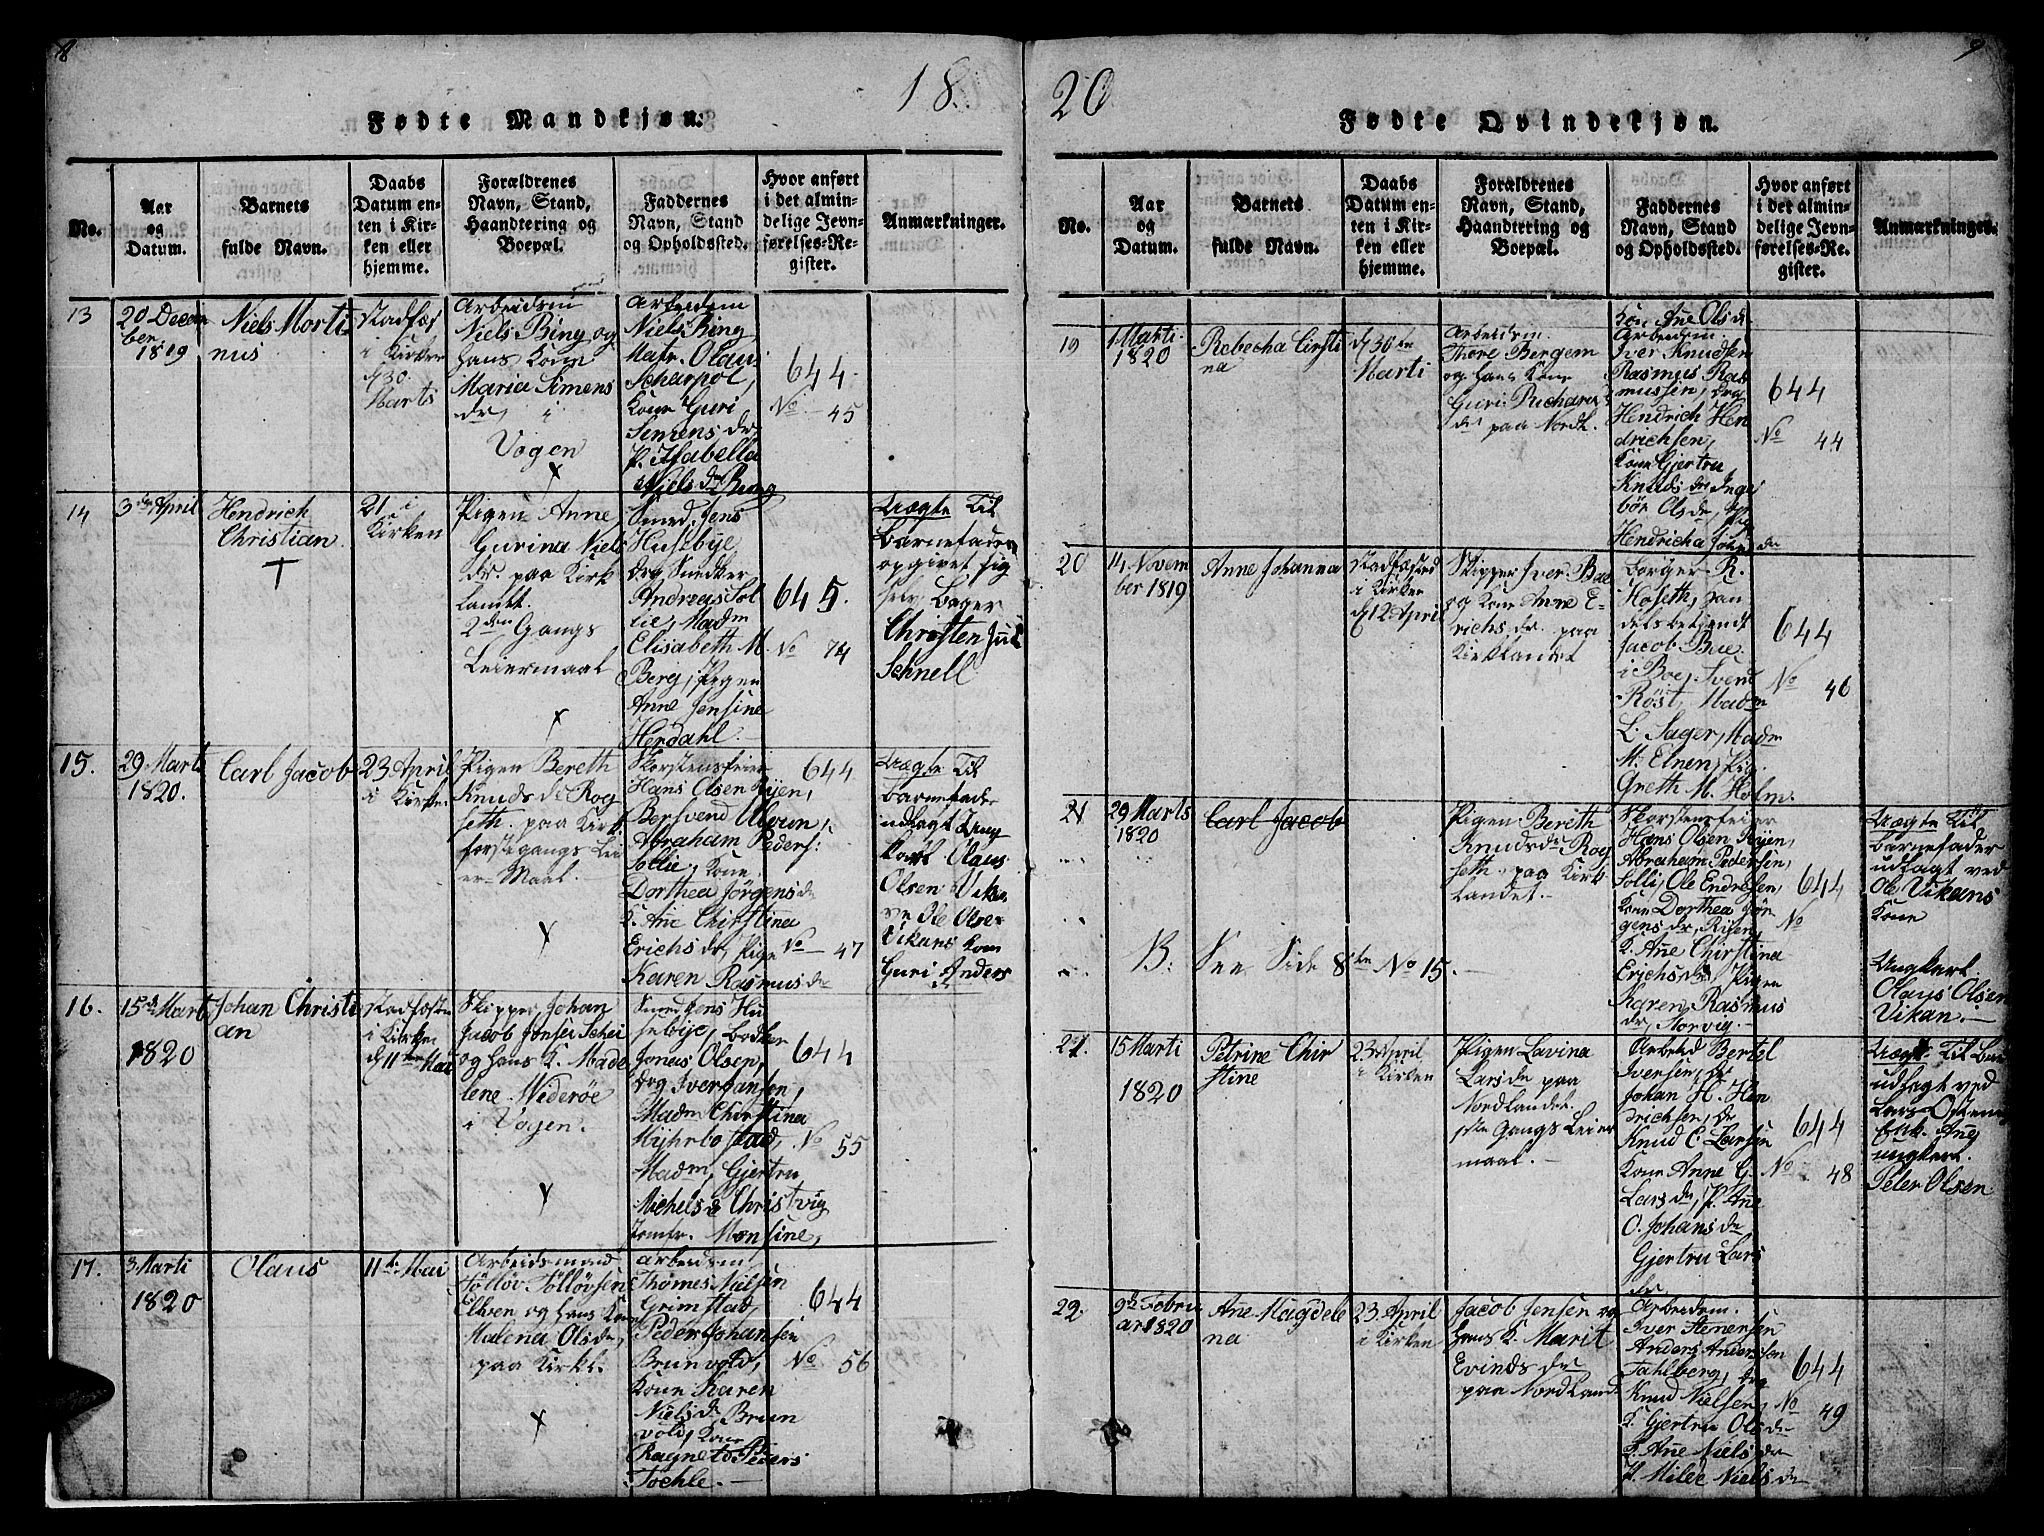 8
18
Fødte Mandkjøn.
No.
Aar
og
Datum.
Barnets
fulde Navn.
Daabs
Datum en-
ten i Kir-
ken eller
hjemme.
Forældrenes
Navn, Stand,
Haandtering og
Boepæl.
Faddernes
Navn, Stand
og Opholdssted.
Hvor anført
i det almin-
delige Jevn-
førelses-Re-
gister.
Anmærkninger.
13
20 Decem
ber
1819
Niels Morti
nus
Stadfæs
i Kirken
d 30
Marts
Arbeidsm
Niels Bing og
hans Kone
Maria Simens
dr, i
Vogen
x
Arbeidsm
Niels Bing
Matr. Olaus
Scharpol,
Kone Guri
Simens dr
P. Isabella
Niels dr Bing
644
No 45
14
3die April
Hendrich
Christian
21 i
Kirken
Pigen Anne
Gurina Niels
dr. paa Kirk
landt.
2den Gangs
Leiermaal
x
Smed Jens
Husebye
og Snedker
Andreas Sol
lie, Madm
Elisabeth M.
Berg, Pigen
Anne Jensine
Herdahl
645.
No 74
Uægte Til
Barnefader
opgivet sig
selv Bager
Christen Juul
Schnell
15.
29 Marts
1820.
Carl Jacob
23 April
i Kirken
Pigen Bereth
Knuds dr Rog
seth. paa Kirk
første gangs Lei
er-Maal
x
Skorstensfeier
Hans Olsen Ryen,
Bersvend Ulvun,
Abraham Peders:
Sollie, Kone
Dorthea Jørgens dr
K. Ane Christina
Erichs dr, Pige
Karen Rasmus dr
644
No 47
Uægte Til
Barnefader
udlagt Ung
karl Olaus
Olsen Vika
ve Ole Olsen
Vikans Kone
Guri Anders
16.
15de Marts
1820
Johan Christi
an
Stadfæste
i Kirken
d 11te Mai
Skipper Johan
Jacob Jensen Schei
og hans K. Made
lene Wederøe
i Vogen.
Smed Jens Hu
sebye, Bødker
Joneus Olsen,
og Iver Jansen,
Madm Christina
Myhrbostad,
Madm, Gjertru
Michels dr Christvig
Jomfr. Monsine,
644
No 55
17.
3 Marti
1820
Olaus
11te Mai
Arbeidsmand
Tølløv Tølløvsen
og hans Kone
Malena Ols dr,
paa Kirkl.
x
Arbeidsm
Thomes Nielsen
Grimstad,
Peder Johansen
Brunvold,
Kone Karen
Niels dr Brun
vold, Kone
Ragnete Peders
Tøchle.
644
No 56
9
20
Fødte Qvindekjøn.
No.
Aar
og
Datum.
Barnets
fulde Navn.
Daabs
Datum en-
ten i Kir-
ken eller
hjemme.
Forældrenes
Navn, Stand,
Haandtering og
Boepæl.
Faddernes
Navn, Stand
og Opholdssted.
Hvor anført
i det almin-
delige Jevn-
førelses-Re-
gister.
Anmærkninger.
19
1 Marti
1820
Rebecha Cirsti
na
d 30te
Marti
Arbeidsm.
Thore Bergem
og hans Kone
Guri Richars
dr paa Nordl.
Kone Ane Ols dr
Arbeidsm
Iver Knudsen
Rasmus Ras
mussen, og
Hendrich Hen
drichsen,
Kone Gjertru
Knuds dr Inge
bor Ols dr, Pig
Hendricha John dr
644
No 44
20
14 Novem
ber 1819
Anne Johanna
Stadfæsted
i Kirken
d 12 April
Skipper Iver Bae
og Kone Anne E-
richs dr. paa
Kirklandet
Borger R.
Hoseth, han
delsbetjendt
Jacob Bue
i Boe, Svend
Röst, Madm
L. Sager, Madm
M. Elnen, Pig.
Greth M. Holm.
644
No 46
21
29 Marts
1820
Carl Jacob
B. See Side 8te No 15.
Pigen Bereth
Knuds dr Rog
seth. paa Kirk
landet.
Skorstensfeier
Hans Olsen Ryen,
Abraham Pedersen,
Solli, Ole Endresen,
Kone Dorthea Jør
gens dr, Riien,
K. Ane Christina
Erichs dr, Pigen
Karen Rasmus
dr, Norvig.
644
No
Uægte Til
Barnefader
udlagt ved
Ole Vikans
Kone
Ungkarl
Olaus Olsen
Vikan.
21.
15 Marti
1820
Petrine Chir
stine
23 April
i Kirken
Pigen Lavina
Lars dr paa
Nordlandet
1ste Gangs Leier
maal.
Arbeid Bertel
Iversen, do
Johan H. Hen
richsen, do
Knud C. Larsen
Kone Anne G.
Lars dr, P. Ane
O. Johans dr
Gjertru Lars
dr
644
No 48
Uægte Til Bar
udlagt ved
Lars
Enk. Ane
ungkarl.
Peter Olsen
22.
9de Febru
ar 1820
Ane Magdele
na
23 April
i Kirken
Jacob Jensen og
hans K. Marit
Evinds dr
paa Nordland.
Arbeidsm.
Iver Stenersen
Anders Anderssen
Tahlberg, og
Knud Nielsen,
K. Gjertru Ols dr
P. Ane Niels dr
P. Milde Niels dr
644
No 49